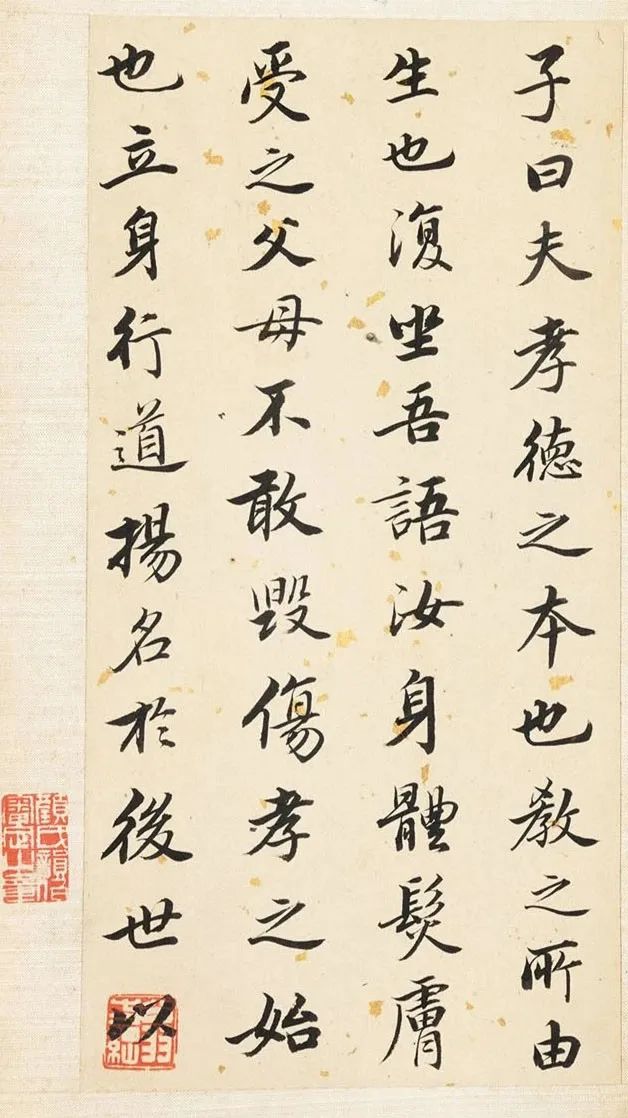 子曰夫孝德之本也教之所由
生也復坐吾語汝身體髮膚
受之父母不敢毀傷孝之始
也立身行道揚名於後世以